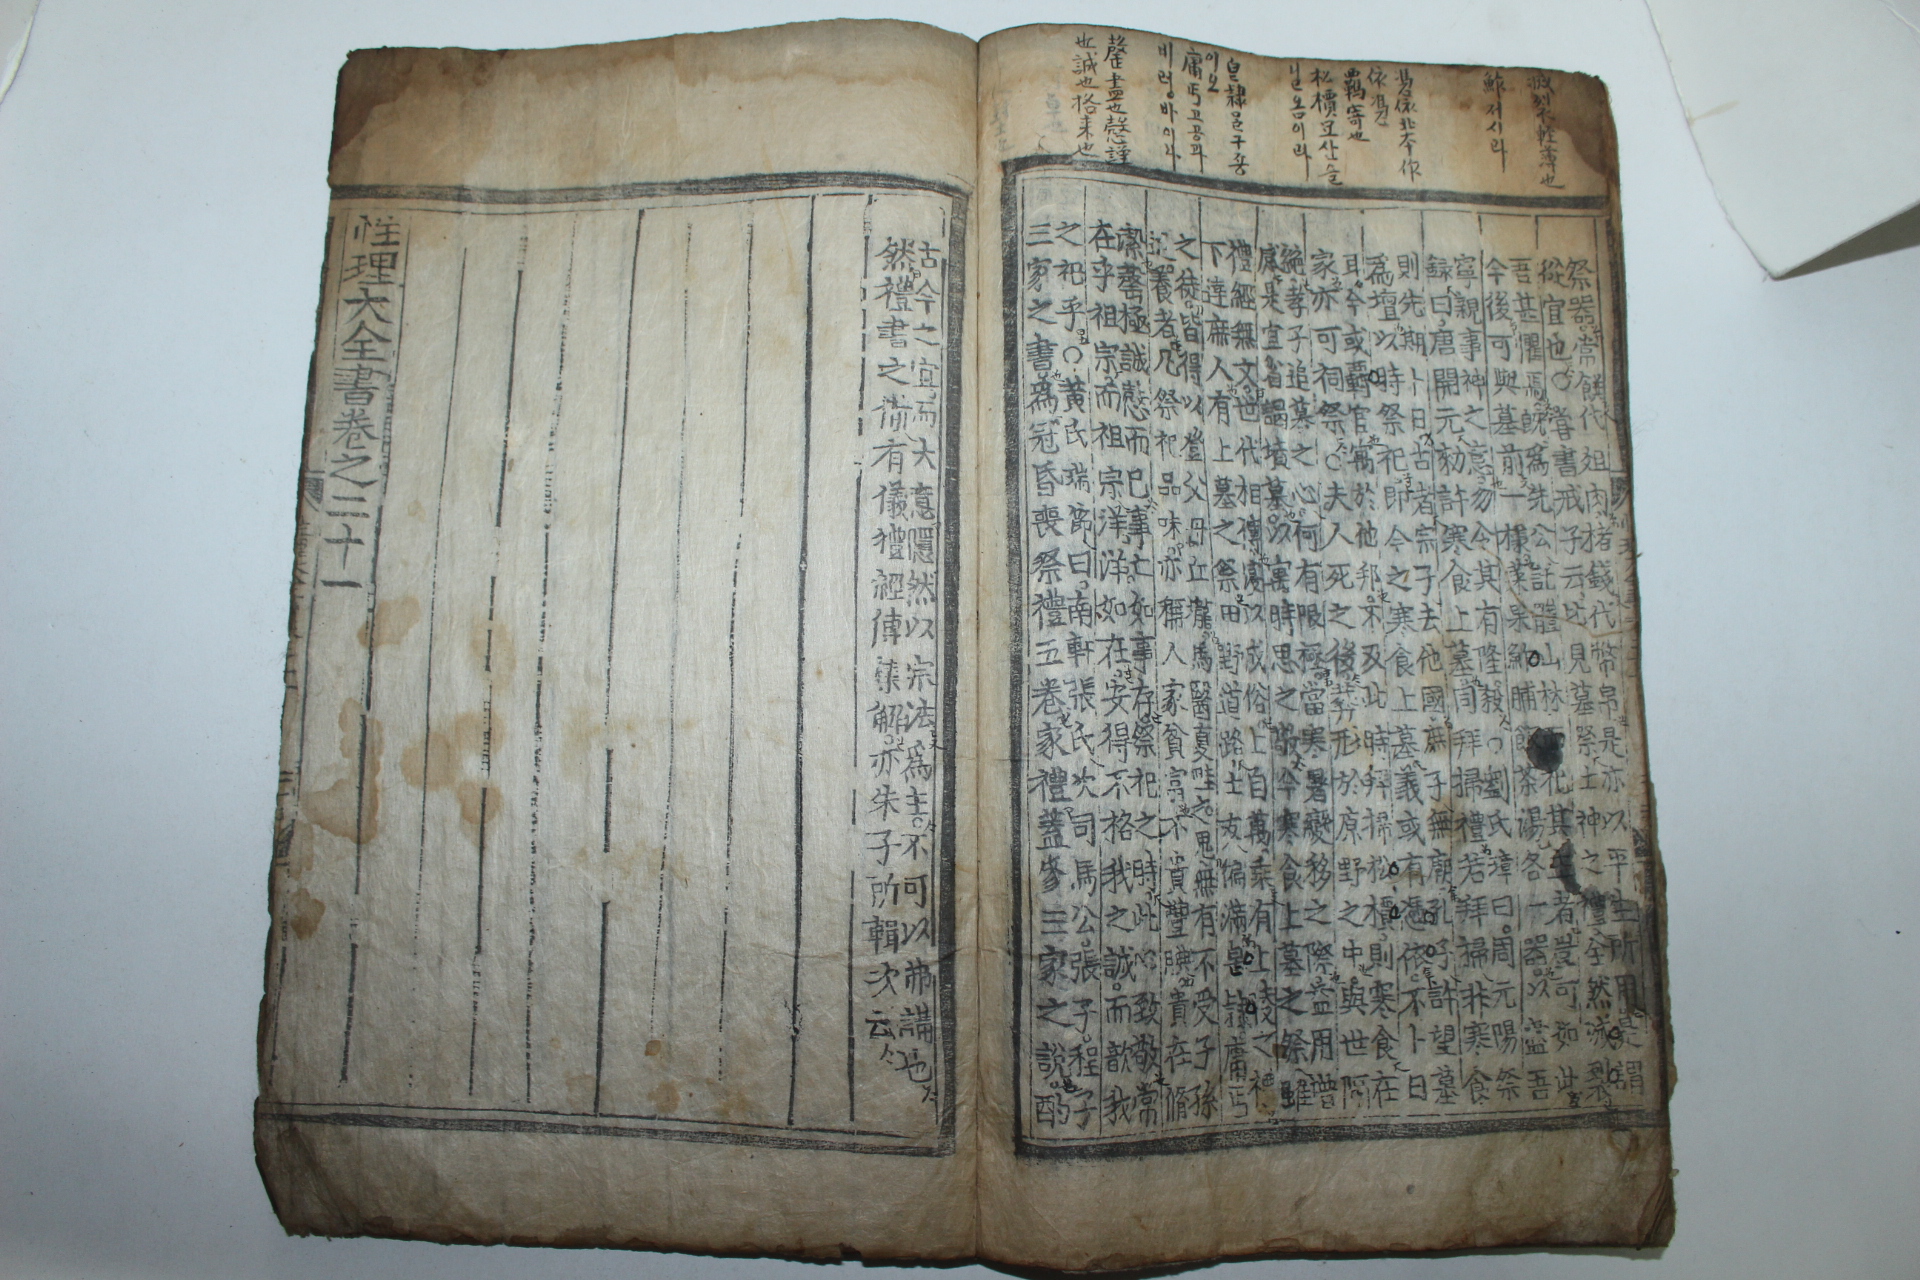 滅裂不輕薄也
鮓저시라
憑依北本作
依憑
羈寄也
松檟모산을
닐옴이라
皂隷믿구종
이오
庸丐고공과
비렁바이라
罄盡也慤謹
也誠也格來也
祭器常饌代俎肉楮錢代幣帛是亦以平生所用是謂
從宜也○書戒子云比見墓祭土神之禮全然滅裂
吾甚懼焉旣爲先公託體山林而祀其主者豈可如此
今後可與墓前一樣菜果鮓脯飯茶湯各一器以盡吾
寧親事神之意勿令其有隆殺○劉氏璋曰周元陽祭
録曰唐開元勑許寒食上墓同拜掃禮若拜掃非寒食
則先期卜日古者宗子去他國庶子無廟孔子許望墓
爲壇以時祭祀即今之寒食上墓義或有憑依不卜日
耳今或羈宦寓於他邦不及此時拜掃松檟則寒食在
家亦可祠祭○夫人死之後葬形於原野之中與世隔
絶孝子追慕之心何有限極當寒暑變移之際益用增
感是宜省謁墳墓以寓時思之敬今寒食上墓之祭雖
禮經無文世代相傳寖以成俗上自萬乘有上陵之禮
下達庶人有上墓之祭田野道路士女徧滿皂隷庸丐
之徒皆得以登父母丘壠馬醫夏畦之鬼無有不受子孫
追養者凡祭祀品味亦稱人家貧富不貴豐腆貴在脩
潔罄極誠慤而已事亡如事存祭祀之時此心致敬常
在乎祖宗而祖宗洋洋如在安得不格我之誠而歆我
之祀乎○黃氏瑞節曰南軒張氏次司馬公張子程子
三家之書爲冠昏喪祭禮五卷家禮蓋參三家之說酌
古今之宜而大意隱然以宗法爲主不可以弗講也
然禮書之備有儀禮經傳集解亦朱子所輯次云
性理大全書卷之二十一